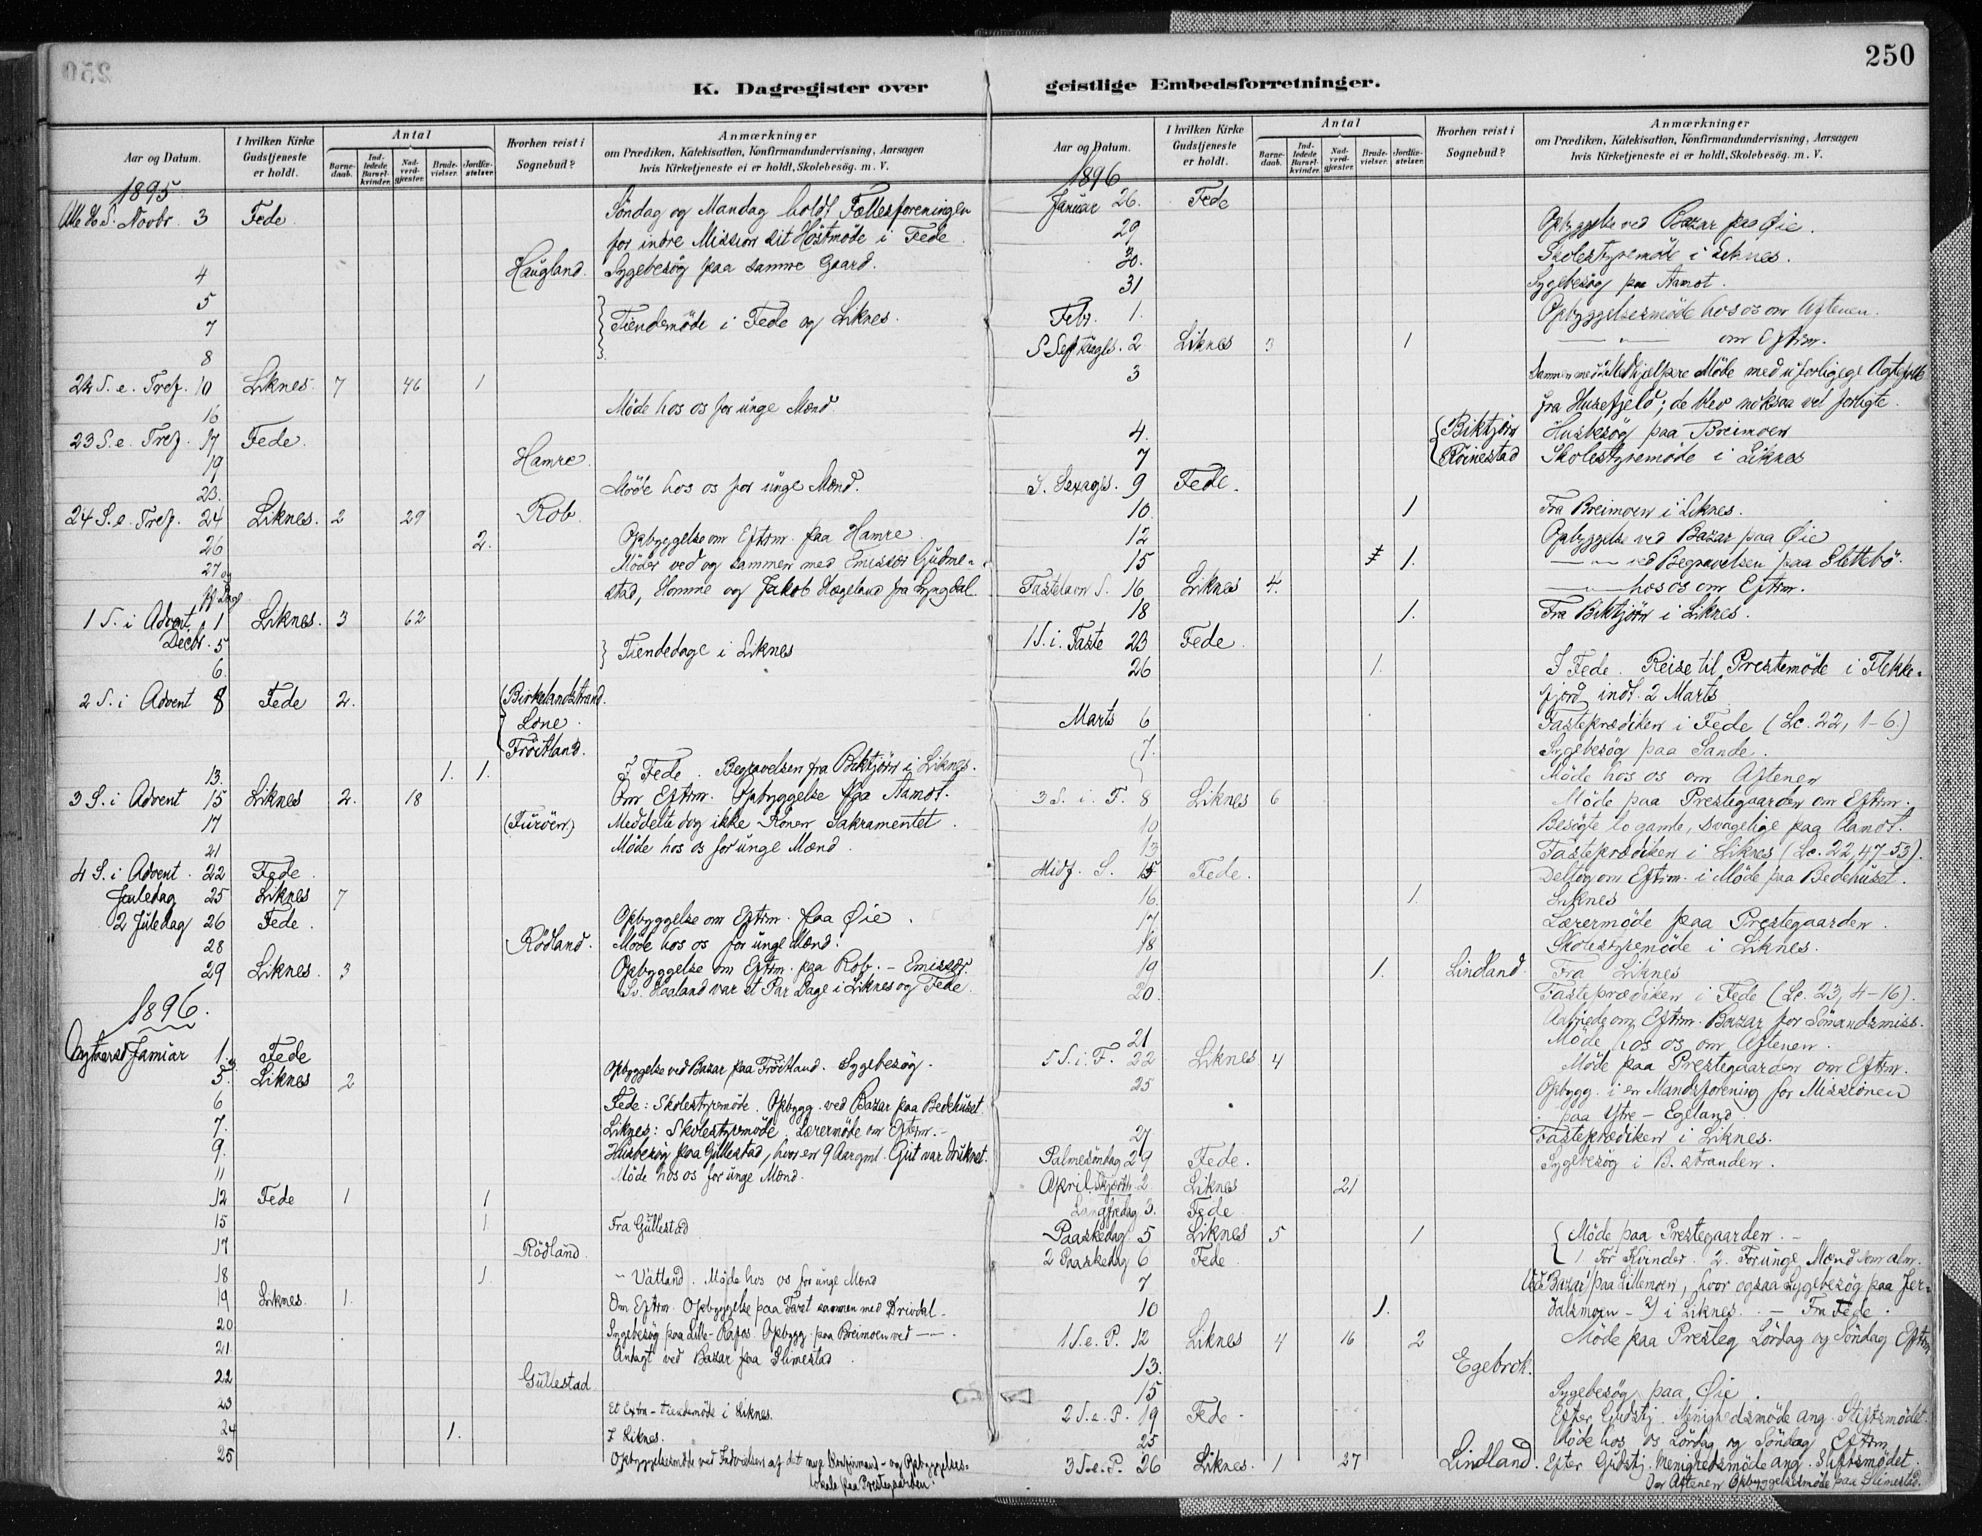 250
K. Dagregister over geistlige Embedsforretninger.
Aar og Datum.
I hvilken Kirke Gudstjeneste er holdt.
Antal
Barne-daab.
Ind-ledede Barsel-kvinder.
Nad-verd-gjæster.
Brude-vielser.
Jordfæ-stelser.
Hvorhen reist i Sognebud?
Anmærkninger
om Prædiken, Katekisation, Konfirmandundervisning, Aarsagen
hvis Kirketjeneste ei er holdt, Skolebesög. m. V.
1895
Alle H. S. Novbr. 3 Fede Söndag og Mandag holdt Fællesforeningen
for indre Mission sit Höstmöde i Fede.
4 Haugland. Sygebesög paa samme Gaard.
5
7 Tiendemöde i Fede og Liknes.
8
22 S. e. Tref. 10 Liknes. 7 46 1
16 Möde hos os for unge Mænd.
23 S. e. Tref. 17 Fede.
19 Hamre.
23. Möde hos os for unge Mænd.
24 S. e. Tref. 24 Liknes. 2 29 Rob.
26 2. Opbyggelse om Eftrm. paa Hamre.
27 og Möder ved og sammen med Emissær Gudme-
stad, Homme og Jakob Hægeland fra Lyngdal.
1 S. i Advent 1 Liknes. 3 62
Decbr. 5 Tiendedage i Liknes
6.
2 S. i Advent 8 Fede 2. (Birkelandstrand.
Lone.
Fröitland.
13. 1. 1. I Fede. Begravelsen fra Biktjörn i Liknes.
3 S. i Advent 15 Liknes 2. 18 Om Eftrm. Opbyggelse paa Aamot.
17 (Furöen) Meddelte dog ikke Konen Sakramentet.
21 Möde hos os for unge Mænd.
4 S. i Advent. 22 Fede.
Juledag 25 Liknes 7
2 Juledag 26 Fede. Opbyggelse om Eftrm. paa Öie.
28 Rödland. Möde hos os for unge Mænd.
29 Liknes. 3 Opbyggelse om Eftrm. paa Rob. - Emissær
Sv. Haaland var et Par Dage i Liknes og Fede.
1896.
Nytaarsd. Januar 1. Fede
5. Liknes 2 Opbyggelse ved Bazar paa Fröitland. Sygebesög.
6 Fede: Skolestyremöde. Opbygg. ved Bazar paa Bedehuset
7. Liknes: Skolestyremöde. Lærermöde om Eftrm. -
9. Husbesög paa Gullestad, hvor en 9 Aar gml. Gut var druknet.
11 Möde hos os for unge Mænd.
12 Fede 1 1
15 1 Fra Gullestad
17 Rödland.
18 1. - Vatland. Möde hos os for unge Mænd
19 Liknes. 1. Om Eftrm. Opbyggelse paa Faret sammen med Drivdal -
20 Sygebesög paa Lille-Rafos. Opbygg. paa Breimoen ved —
21. Andagt ved Bazar paa Slimestad.
22 Gullestad
23 Et Extra-tiendemöde i Liknes.
24 1. I Liknes.
25 Opbyggelsesmöde ved Indvielsen af det nye Konfirmand- og Opbyggelses-
lokale paa Prestegaarden.
Aar og Datum.
I hvilken Kirke Gudstjeneste er holdt.
Antal
Barne-daab.
Ind-ledede Barsel-kvinder.
Nad-verd-gjæster.
Brude-vielser.
Jordfæ-stelser.
Hvorhen reist i Sognebud?
Anmærkninger
om Prædiken, Katekisation, Konfirmandundervisning, Aarsagen
hvis Kirketjeneste ei er holdt, Skolebesög. m. V.
1896
Januar 26. Fede
29 Opbyggelse ved Bazar paa Öie.
30. Skolestyremöde i Liknes.
31 Sygebesög paa Aamot.
Febr. 1. Opbyggelsesmöde hos os om Aftenen.
S. Septuages. 2 Liknes 3 1 — " — om Eftrm.
3 Sammen med Medhjælpere Möde med uforligte Ægtefolk
fra Husefjeld; de blev noksaa vel forligte.
4. Biktjörn Husbesög paa Breimoen
7 Röinestad Skolestyremöde i Liknes
S. Sexages. 9 Fede.
10 1 Fra Breimoen i Liknes.
12 Opbyggelse ved Bazar paa Öie
15 1. — " — ved Begravelsen paa Slettebö.
Fastelavn S. 16 Liknes 4. — " — hos os om Eftrm.
18 1. Fra Biktjörn i Liknes.
1 S. i. Faste 23 Fede.
26 1. I Fede. Reise til Prestemöde i Flekke-
fjord indt. 2 Marts
Marts 6 Fasteprædiken i Fede (Lc. 22, 1-6.)
7. Sygebesög paa Sande.
Möde hos os om Aftenen
3 S. i. F. 8 Liknes 6 Möde paa Prestegaarden om Eftrm.
10 Besögte to gamle, svagelige paa Aamot.
13 Fasteprædiken i Liknes (Lc. 22, 47-53).
Midf. S. 15 Fede. Deltog om Eftrm. i Möde paa Bedehuset.
16. 1. Liknes
17 Lærermöde paa Prestegaarden.
18 Skolestyremöde i Liknes.
19 1. Lindland. Fra Liknes
20. Fasteprædiken i Fede (Lc. 23, 4-16).
Aabnede om Eftrm. Bazar for Sömandsmiss.
21 Möde hos os om Aftenen.
5 S. i. F. 22 Liknes 4 Möde paa Prestegaarden om Eftrm.
25 Opbygg. i en Mandsforening for Missionen
paa Ytre-Egeland.
27 Fasteprædiken i Liknes.
Palmesöndag 29 Fede. Sygebesög i B. stranden.
April. Skjærth. 2. Liknes 21
Langfredag 3. Fede.
Paaskedag 5 Liknes 5 1 Möde paa Prestegaarden. -
2 Paaskedag 6 Fede. 1. For Kvinder. 2. For unge Mænd som alm.
7 Ved Bazar paa Lillemoen, hvor ogsaa Sygebesög paa Jer-
10 1. dalsmoen - i Liknes. - Fra Fede.
1 S. e. P. 12 Liknes 4 16 2 Möde paa Presteg. Lördag og Söndag Eftm
13. Egebrok.
15 Sygebesög paa Öie.
2 S. e. P. 19 Fede. Efter Gudstj. Menighedsmöde ang. Stiftsmödet.
25 Möde hos os Lördag og Söndag Eftrm
3 S. e. P. 26 Liknes. 1 27 Lindland. Efter Gudstj. Menighedsmöde ang. Stiftsmödet.
Om Aftenen Opbyggelsesmöde paa Slimestad.